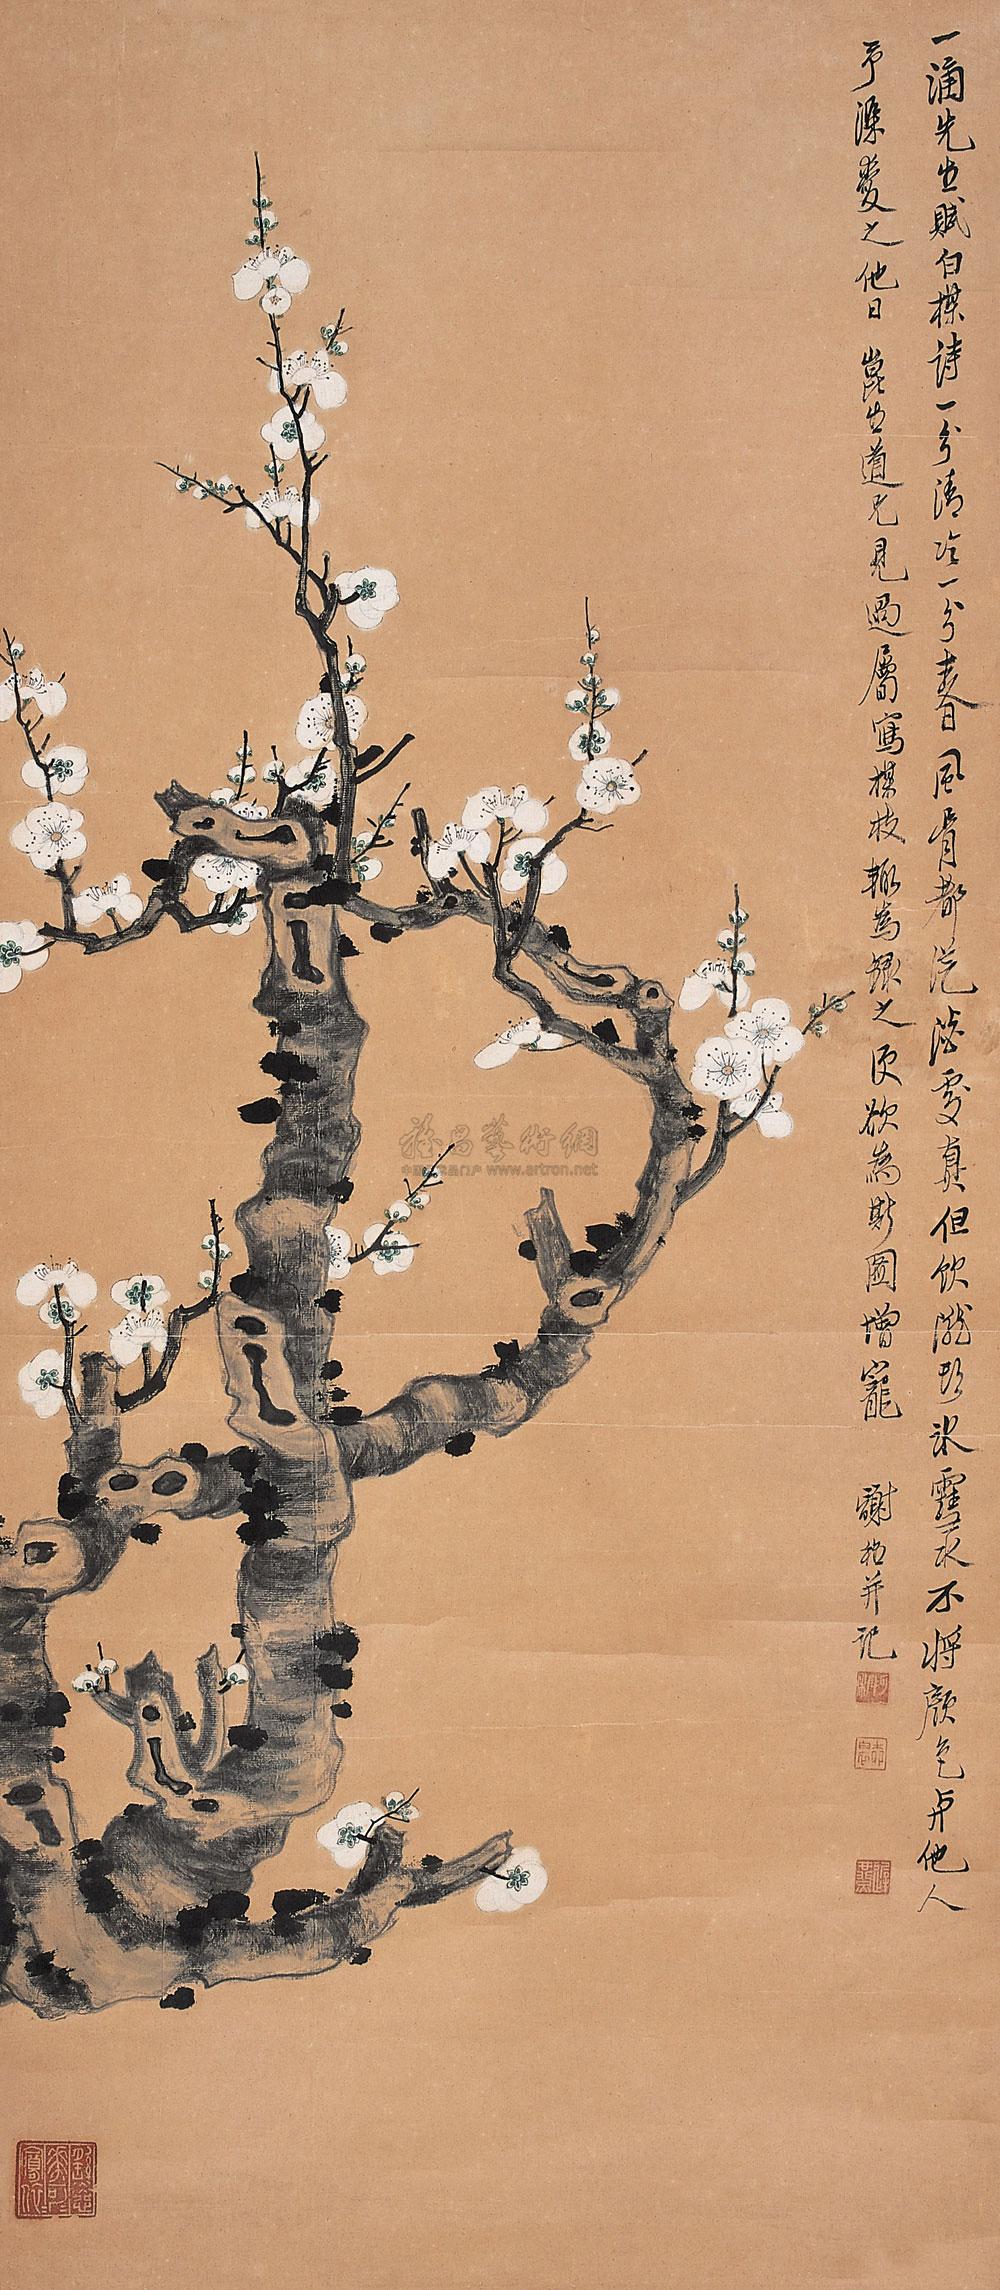 一浦先生賦白楳詩一分清冷一分春風骨都從澹處真但飲瀣敨冰雪天不將顏色與他人
予深愛之他日 崑生道兄見過屬寫楳枝輙為録之更欲為斯圖增寵 謝稚并記
雅昌藝術網
www.artron.net